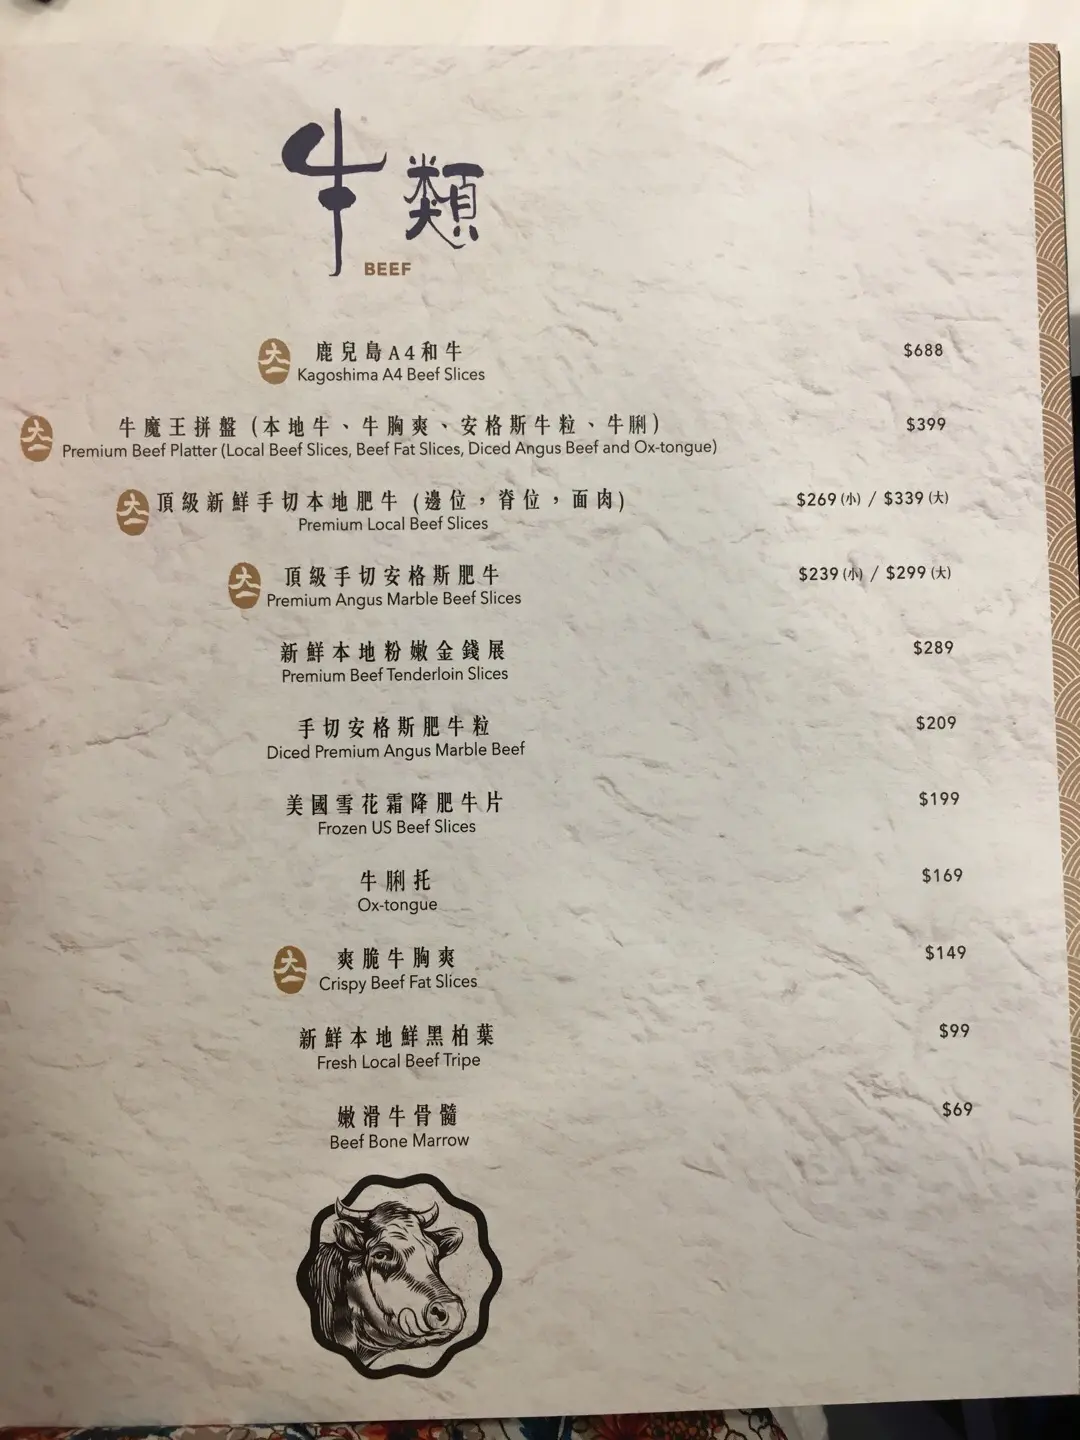 牛類
BEEF
大一 鹿兒島A4和牛 $688
Kagoshima A4 Beef Slices
大一 牛魔王拼盤 (本地牛、牛胸爽、安格斯牛粒、牛脷) $399
Premium Beef Platter (Local Beef Slices, Beef Fat Slices, Diced Angus Beef and Ox-tongue)
大一 頂級新鮮手切本地肥牛 (邊位，脊位，面肉) $269 (小) / $339 (大)
Premium Local Beef Slices
大一 頂級手切安格斯肥牛 $239 (小) / $299 (大)
Premium Angus Marble Beef Slices
新鮮本地粉嫩金錢展 $289
Premium Beef Tenderloin Slices
手切安格斯肥牛粒 $209
Diced Premium Angus Marble Beef
美國雪花霜降肥牛片 $199
Frozen US Beef Slices
牛脷托 $169
Ox-tongue
大一 爽脆牛胸爽 $149
Crispy Beef Fat Slices
新鮮本地鮮黑柏葉 $99
Fresh Local Beef Tripe
嫩滑牛骨髓 $69
Beef Bone Marrow